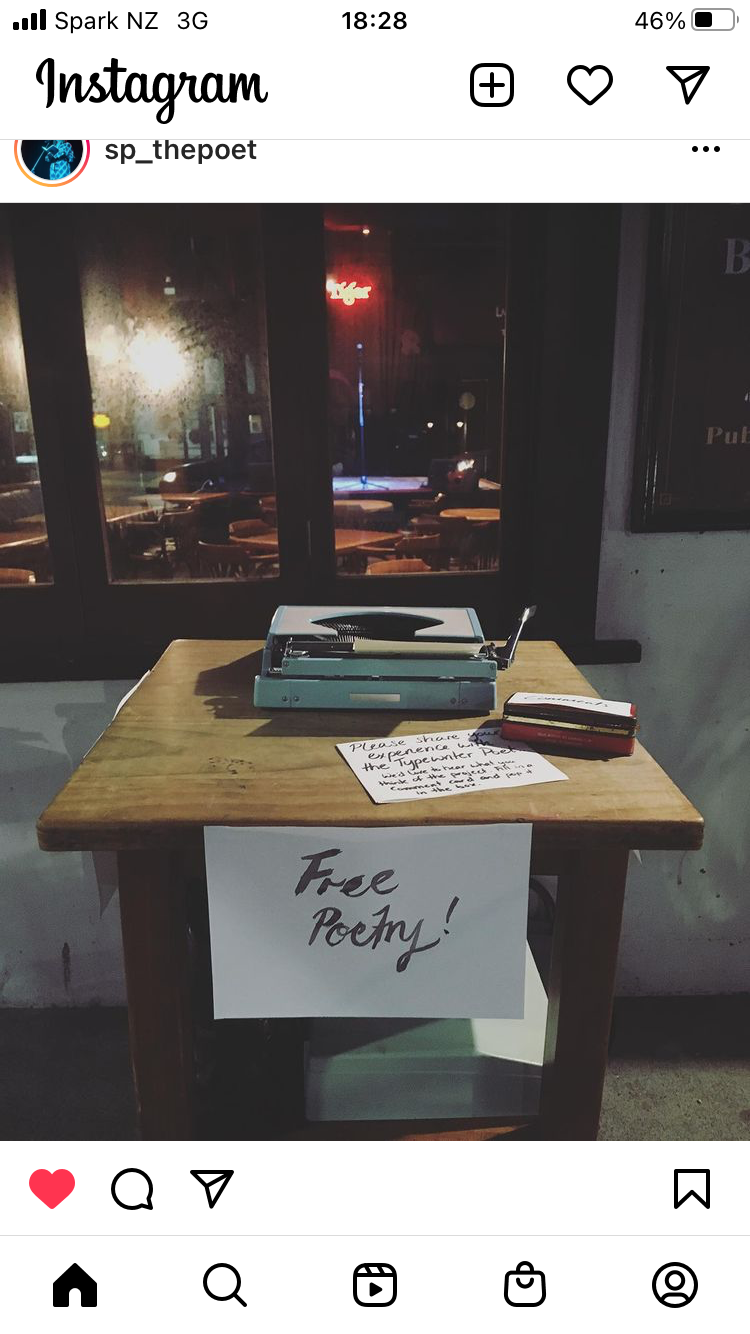 Spark NZ 3G 18:28 46%
Instagram
sp_thepoet
Tiger
B
Pub
Comments
Please share your
experience with
the Typewriter Poet
We'd love to hear what you
think of the project. Fill in a
comment card and pop it
in the box.
Free
Poetry!